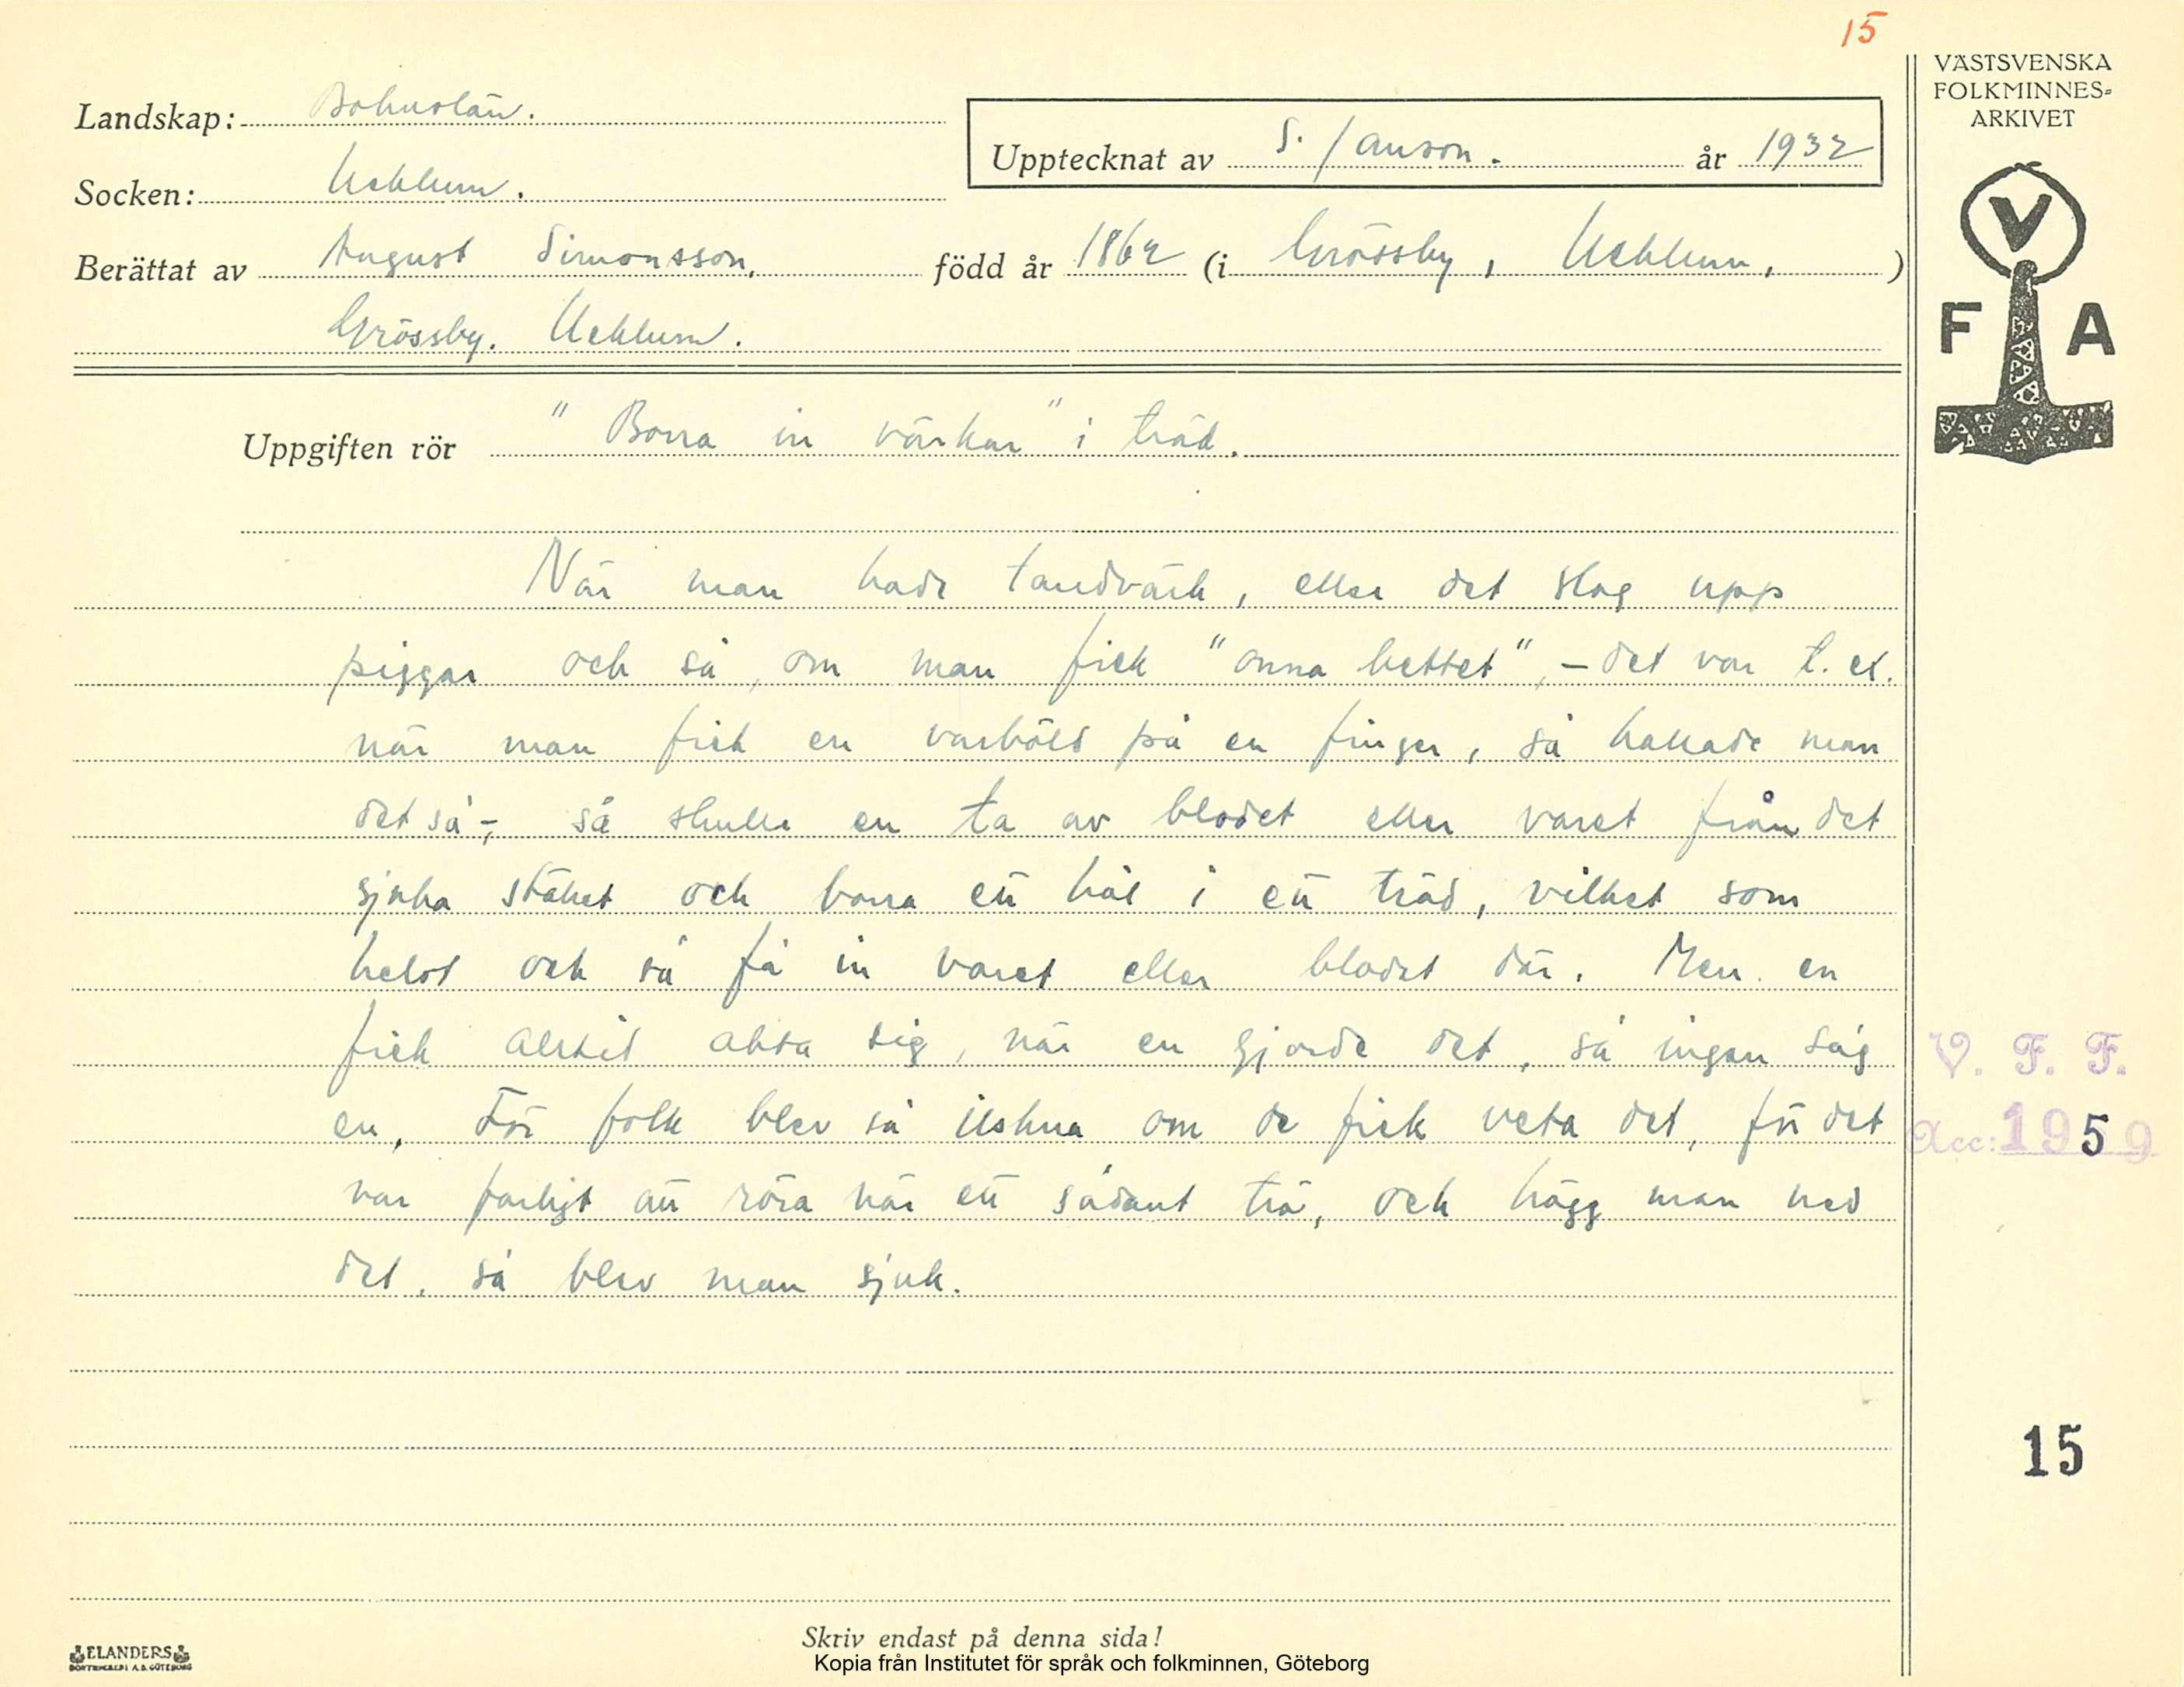 15
VÄSTSVENSKA
FOLKMINNES-
ARKIVET
Landskap: Bohuslän.
Upptecknat av S. Janson. år 1932
Socken: Ucklum.
Berättat av August Simonsson, född år 1862 (i Grössby, Ucklum, )
Grössby. Ucklum.
V
F A
Uppgiften rör "Borra in värkar" i träd.
När man hade tandvärk, eller det slog upp
piggar och så, om man fick "onna bettet", – det var t. ex.
när man fick en varböld på en finger, så kallade man
det så –, så skulle en ta av blodet eller varet från det
sjuka stället och borra ett hål i ett träd, vilket som
helst och så få in varet eller blodet där. Men en
fick alltid akta sig, när en gjorde det, så ingen såg
en. För folk blev så ilskna om de fick veta det, för det
var farligt att röra när ett sådant trä, och högg man ned
det, så blev man sjuk.
V. F. F.
Acc: 1959
15
Skriv endast på denna sida!
ELANDERS
BOKTRYCKERI A.B. GÖTEBORG
Kopia från Institutet för språk och folkminnen, Göteborg